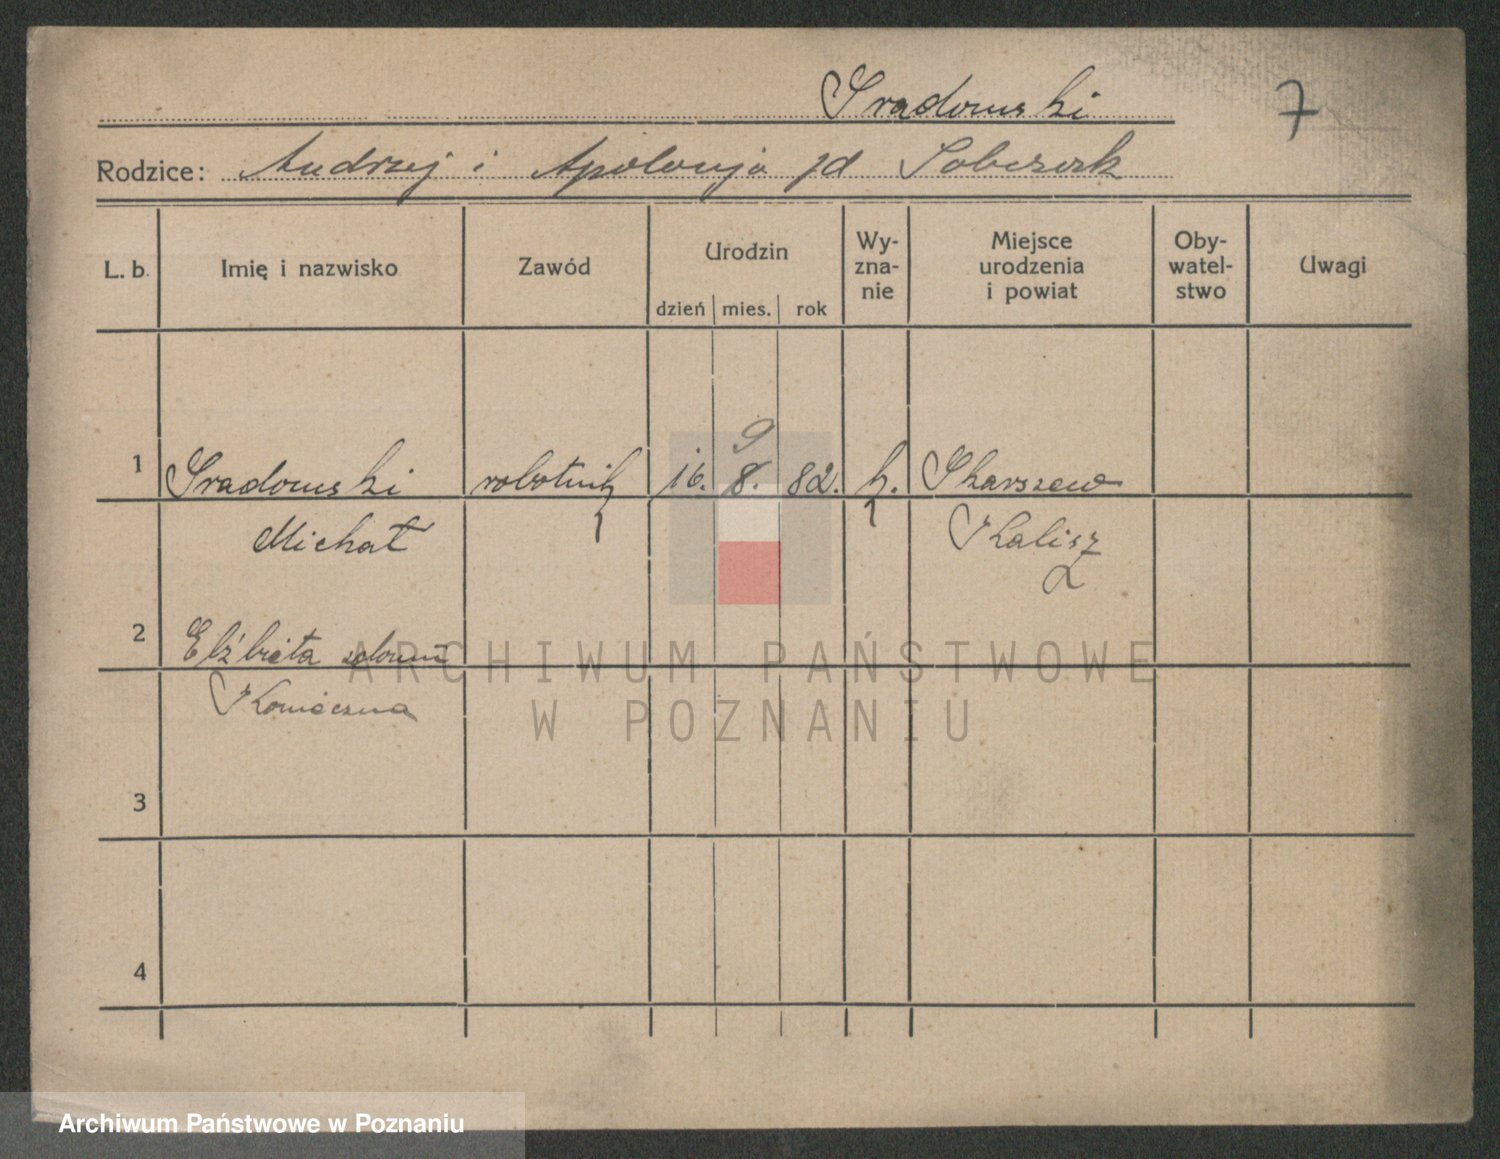 Sradowski 7
Rodzice: Andrzej i Apolonja zd Sobczak
L. b. Imię i nazwisko Zawód Urodzin dzień mies. rok Wy-zna-nie Miejsce urodzenia i powiat Oby-watel-stwo Uwagi
9
1 Sradowski robotnik 16. 8. 82. k. Skarszew
Michał Kalisz
2 Elżbieta
Konieczna
ARCHIWUM PAŃSTWOWE
W POZNANIU
3
4
Archiwum Państwowe w Poznaniu